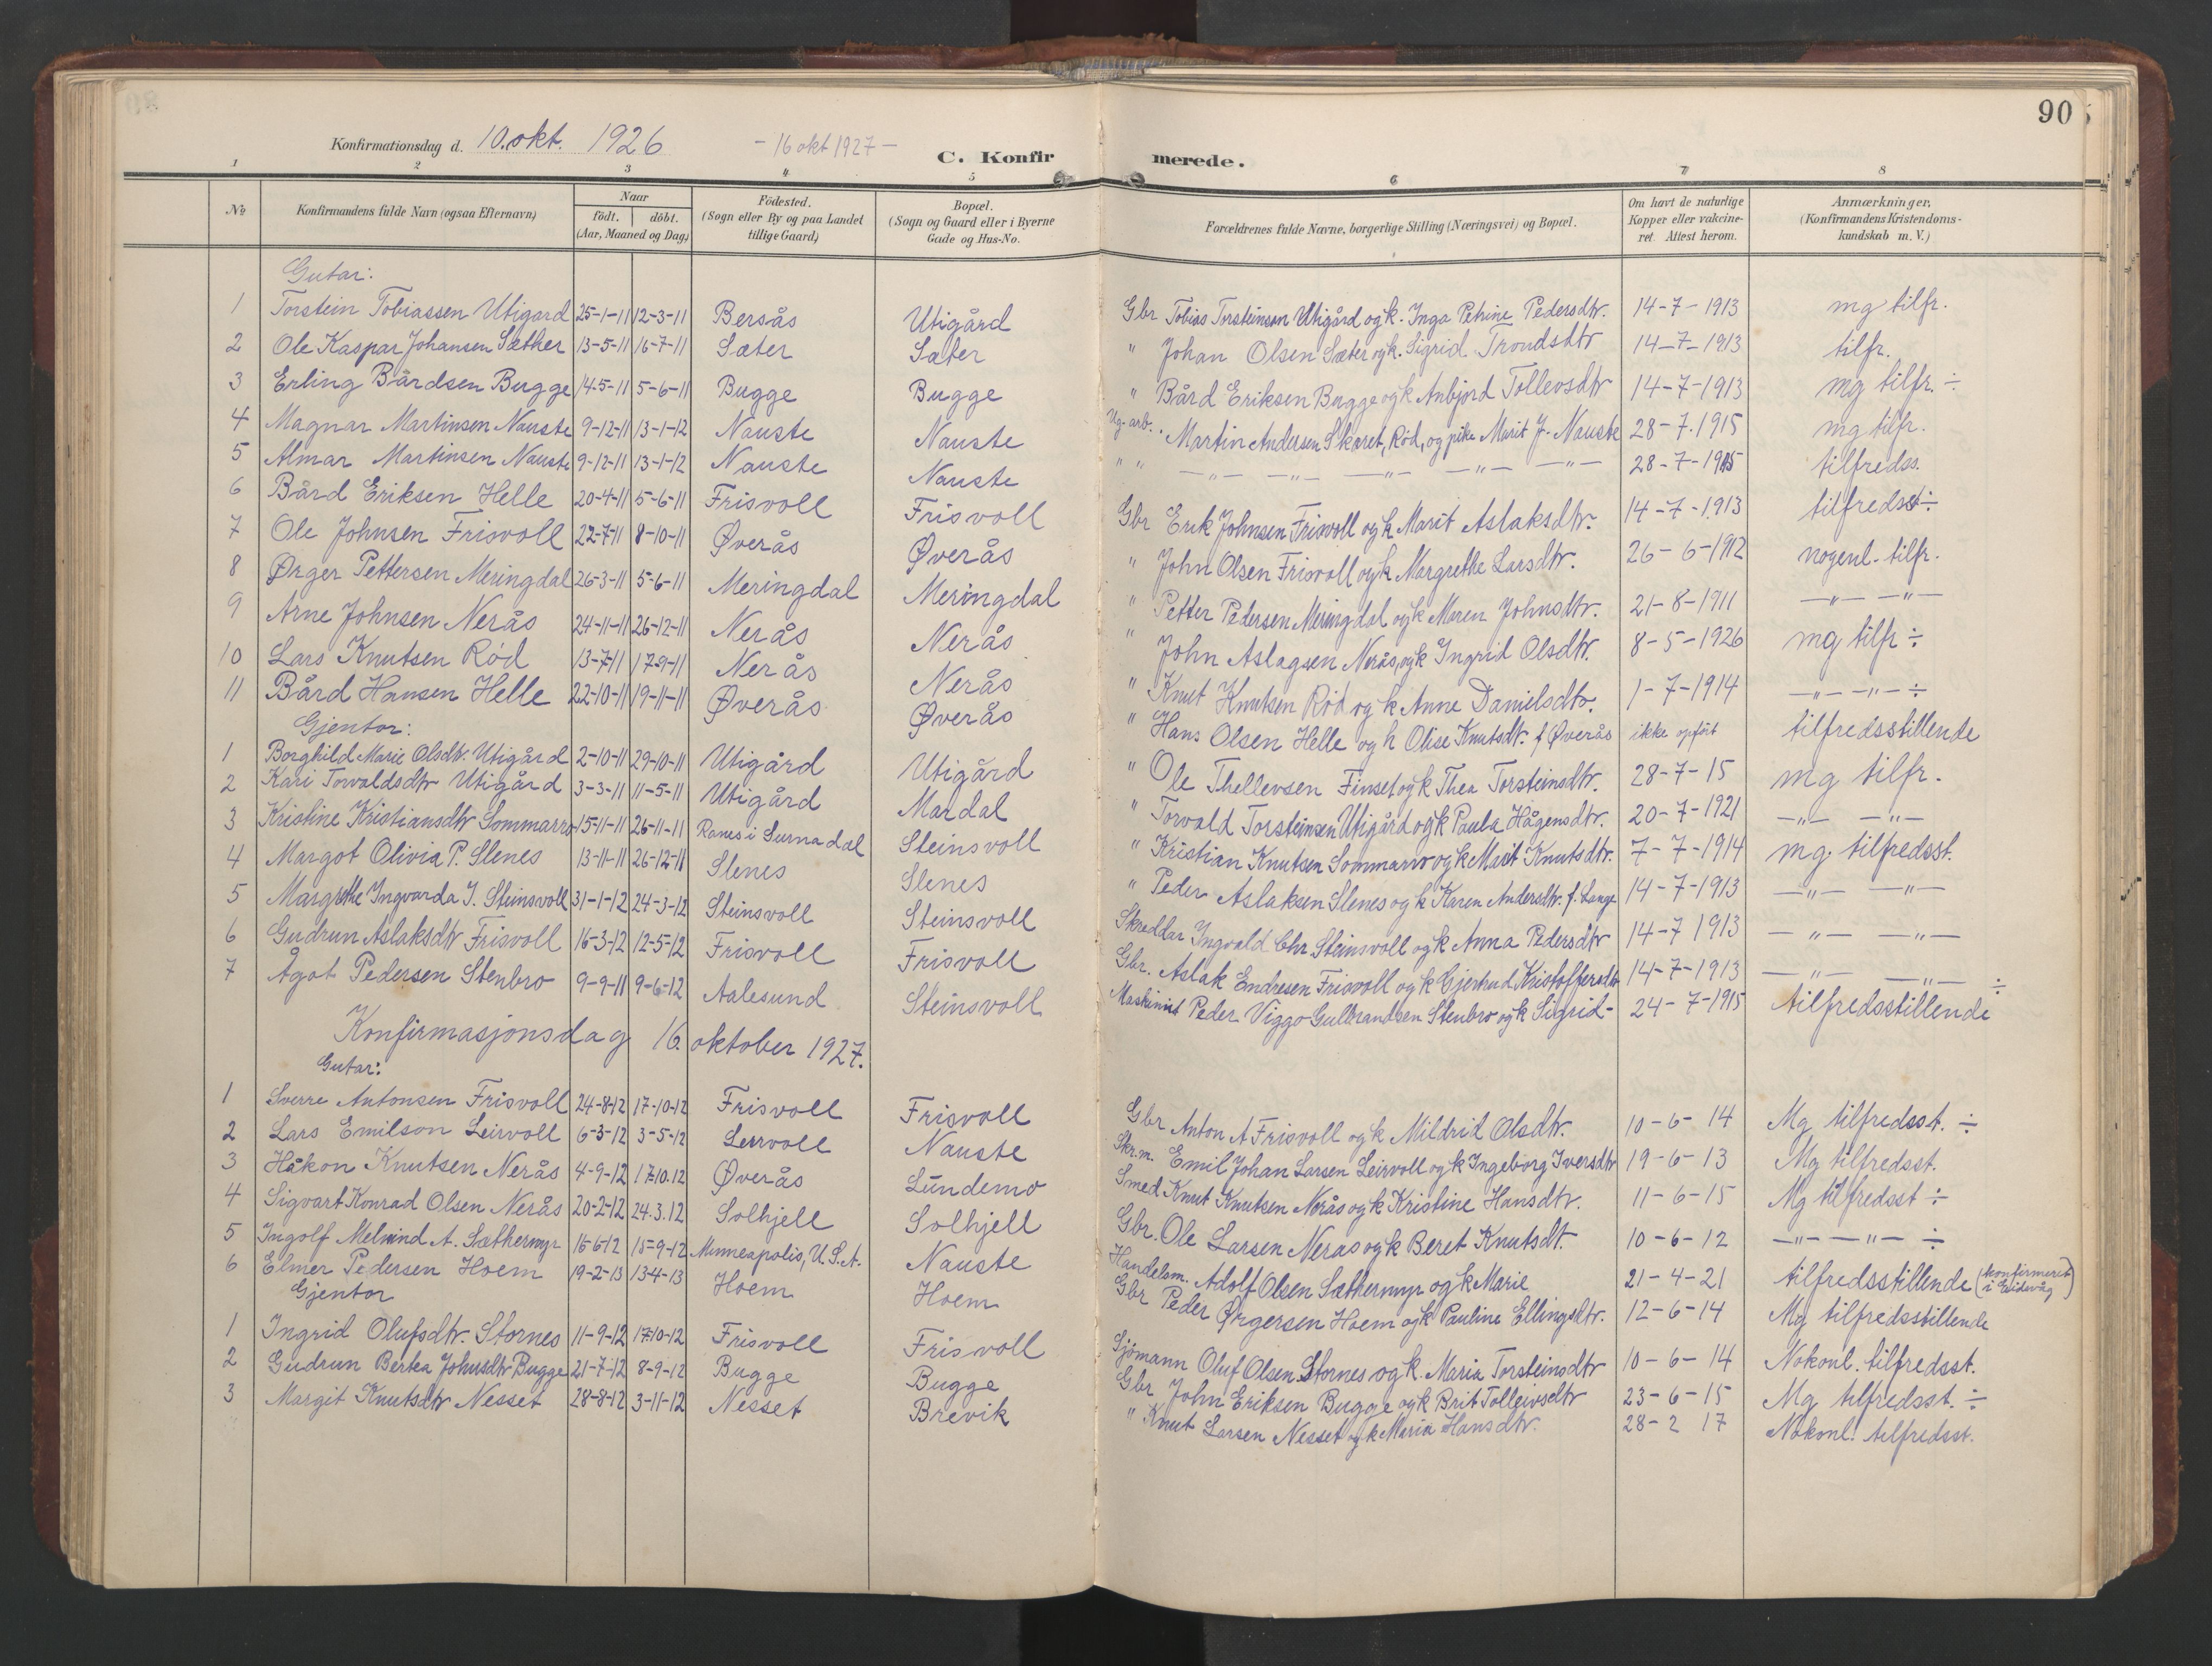 90
Konfirmationsdag d. 10. okt. 1926 - 16 okt 1927 -
C. Konfirmerede.
1 2 3 4 5 6 7 8
No
Konfirmandens fulde Navn (ogsaa Efternavn)
Naar
födt. döbt.
(Aar, Maaned og Dag)
Födested.
(Sogn eller By og paa Landet
tillige Gaard)
Bopæl.
(Sogn og Gaard eller i Byerne
Gade og Hus-No.
Forældrenes fulde Navne, borgerlige Stilling (Næringsvei) og Bopæl.
Om havt de naturlige
Kopper eller vakcine-
ret. Attest herom.
Anmærkninger,
(Konfirmandens Kristendoms-
kundskab m. V.)
Gutar:
1 Torstein Tobiassen Utigard 25-1-11 12-3-11 Bersås Utigård Gbr Tobias Torsteinsen Utigård og k. Inga Petrine Pedersdtr. 14-7-1913 mg tilfr.
2 Ole Kaspar Johansen Sæther 13-5-11 16-7-11 Sæter Sæter " Johan Olsen Sæter og k. Sigrid Trondsdtr 14-7-1913 tilfr.
3 Erling Bårdsen Bugge 14-5-11 5-6-11 Bugge Bugge " Bård Eriksen Bugge og k Anbjørd Tollevsdtr 14-7-1913 mg tilfr. ÷
4 Magnar Martinsen Nauste 9-12-11 13-1-12 Nauste Nauste Ug. arb. Martin Andersen Skaret, Rød, og pike Marit J. Nauste 28-7-1915 mg tilfr.
5 Almar Martinsen Nauste 9-12-11 13-1-12 Nauste Nauste " " -"- -"- -"- -"- -"- 28-7-1915 tilfreds.
6 Bård Eriksen Helle 20-4-11 5-6-11 Frisvoll Frisvoll Gbr Erik Johnsen Frisvoll og k Marit Aslaksdtr. 14-7-1913 tilfredst ÷
7 Ole Johnsen Frisvoll 22-7-11 8-10-11 Øverås Øverås " John Olsen Frisvoll og k Margrethe Larsdtr. 26-6-1912 nogenl. tilfr.
8 Ørger Pettersen Meringdal 26-3-11 5-6-11 Meringdal Meringdal " Petter Pedersen Meringdal og k Maren Johnsdtr. 21-8-1911 -"- -"-
9 Arne Johnsen Nerås 24-11-11 26-12-11 Nerås Nerås " John Aslagsen Nerås, og k Ingrid Olsdtr. 8-5-1926 mg tilfr ÷
10 Lars Knutsen Rød 13-7-11 17-9-11 Nerås Nerås " Knut Knutsen Rød og k Anne Danielsdtr. 1-7-1914 -"- -"- ÷
11 Bård Hansen Helle 22-10-11 19-11-11 Øverås Øverås " Hans Olsen Helle og h Olise Knutsdtr. f Øverås ikke opført tilfredsstillende
Gjentor:
1 Borghild Marie Olsdtr. Utigård 2-10-11 29-10-11 Utigård Utigård " Ole Thellevsen Finset og k Thea Torsteinsdtr. 28-7-15 mg tilfr.
2 Kari Torvaldsdtr Utigård 3-3-11 11-5-11 Utigård Mardal " Torvald Torsteinsen Utigård og k Paula Hågensdtr. 20-7-1921 -"- -"-
3 Kristine Kristiansdtr Sommarro 15-11-11 26-11-11 Ranes i Surnadal Steinsvoll " Kristian Knutsen Sommarro og k Marit Knutsdtr. 7-7-1914 mg. tilfredsst.
4 Margot Olivia P. Slenes 13-11-11 26-12-11 Slenes Slenes " Peder Aslaksen Slenes og k Karen Andersdtr. f. Lange 14-7-1913 -"- -"-
5 Margrethe Ingvarda I. Steinsvoll 31-1-12 24-3-12 Steinsvoll Steinsvoll Skreddar Ingvald Chr Steinsvoll og k Anna Pedersdtr 14-7 1913 -"- -"-
6 Gudrun Aslaksdtr Frisvoll 16-3-12 12-5-12 Frisvoll Frisvoll Gbr. Aslak Endresen Frisvoll og k Gjertrud Kristoffersdtr 14-7-1913 -"- -"- ÷
7 Ågot Pedersen Stenbro 9-9-11 9-6-12 Aalesund Steinsvoll Maskinist Peder Viggo Gulbrandsen Stenbro og k Sigrid- 24-7-1915 tilfredsstillende
Konfirmasjonsdag 16. oktober 1927.
Gutar:
1 Sverre Antonsen Frisvoll 24-8-12 17-10-12 Frisvoll Frisvoll Gbr Anton A Frisvoll og k Mildrid Olsdtr. 10-6-14 Mg tilfredsst. ÷
2 Lars Emilson Leirvoll 6-3-12 3-5-12 Leirvoll Nauste Skr.m. Emil Johan Larsen Leirvoll og k Ingeborg Iversdtr 19-6-13 Mg tilfredsst.
3 Håkon Knutsen Nerås 4-9-12 17.10.12 Øverås Lundemo Smed Knut Knutsen Nerås og k Kristine Hansdtr. 11-6-15 Mg tilfredsst ÷
4 Sigvart Konrad Olsen Nerås 20-2-12 24.3.12 Solhjell Solhjell Gbr. Ole Larsen Nerås og k Beret Knutsdt. 10-6-12 -"- -"- ÷
5 Ingolf Melvind A. Sæthermyr 16-6-12 15-9-12 Minneapolis, U.S.A. Nauste Handelsm. Adolf Olsen Sæthermyr og k Marie 21-4-21 tilfredsstillende (konfirmeret i Eidsvåg)
6 Elmer Pedersen Hoem 19-2-13 13-4-13 Hoem Hoem Gbr Peder Ørgersen Hoem og k Pauline Ellingsdtr. 12-6-14 Mg tilfredsstillende
Gjentor
1 Ingrid Olufsdtr. Stornes 11-9-12 17-10-12 Frisvoll Frisvoll Sjömann Oluf Olsen Stornes og k. Maria Torsteinsdtr 10-6-14 Nokonl. tilfredsst.
2 Gudrun Bertea Johnsdtr Bugge 21-7-12 8-9-12 Bugge Bugge Gbr John Eriksen Bugge og k Brit Tolleivsdtr 23-6-15 Mg tilfredsst. ÷
3 Margit Knutsdtr Nesset 28-8-12 3-11-12 Nesset Brevik " Knut Larsen Nesset og k Maria Hansdtr. 28-2 17 Nokonl. tilfredsst.